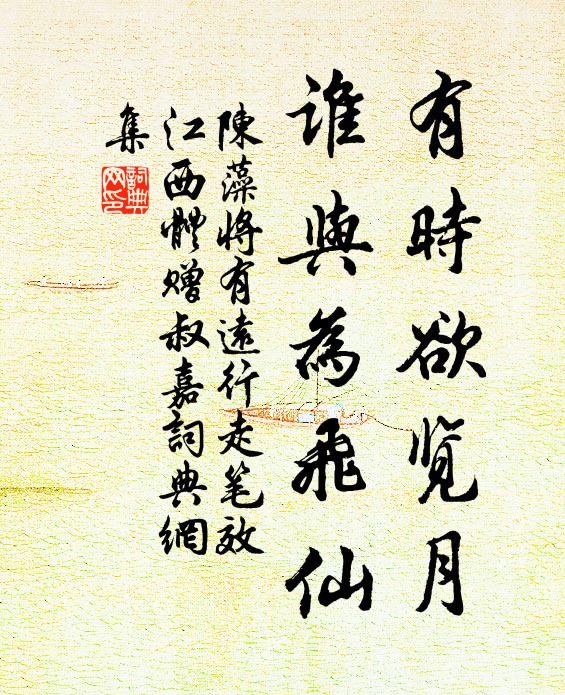 有時欲览月
誰與為飛仙
陳藻將有遠行走笔效
江西體赠叔嘉詞典網
集
詞典
网印